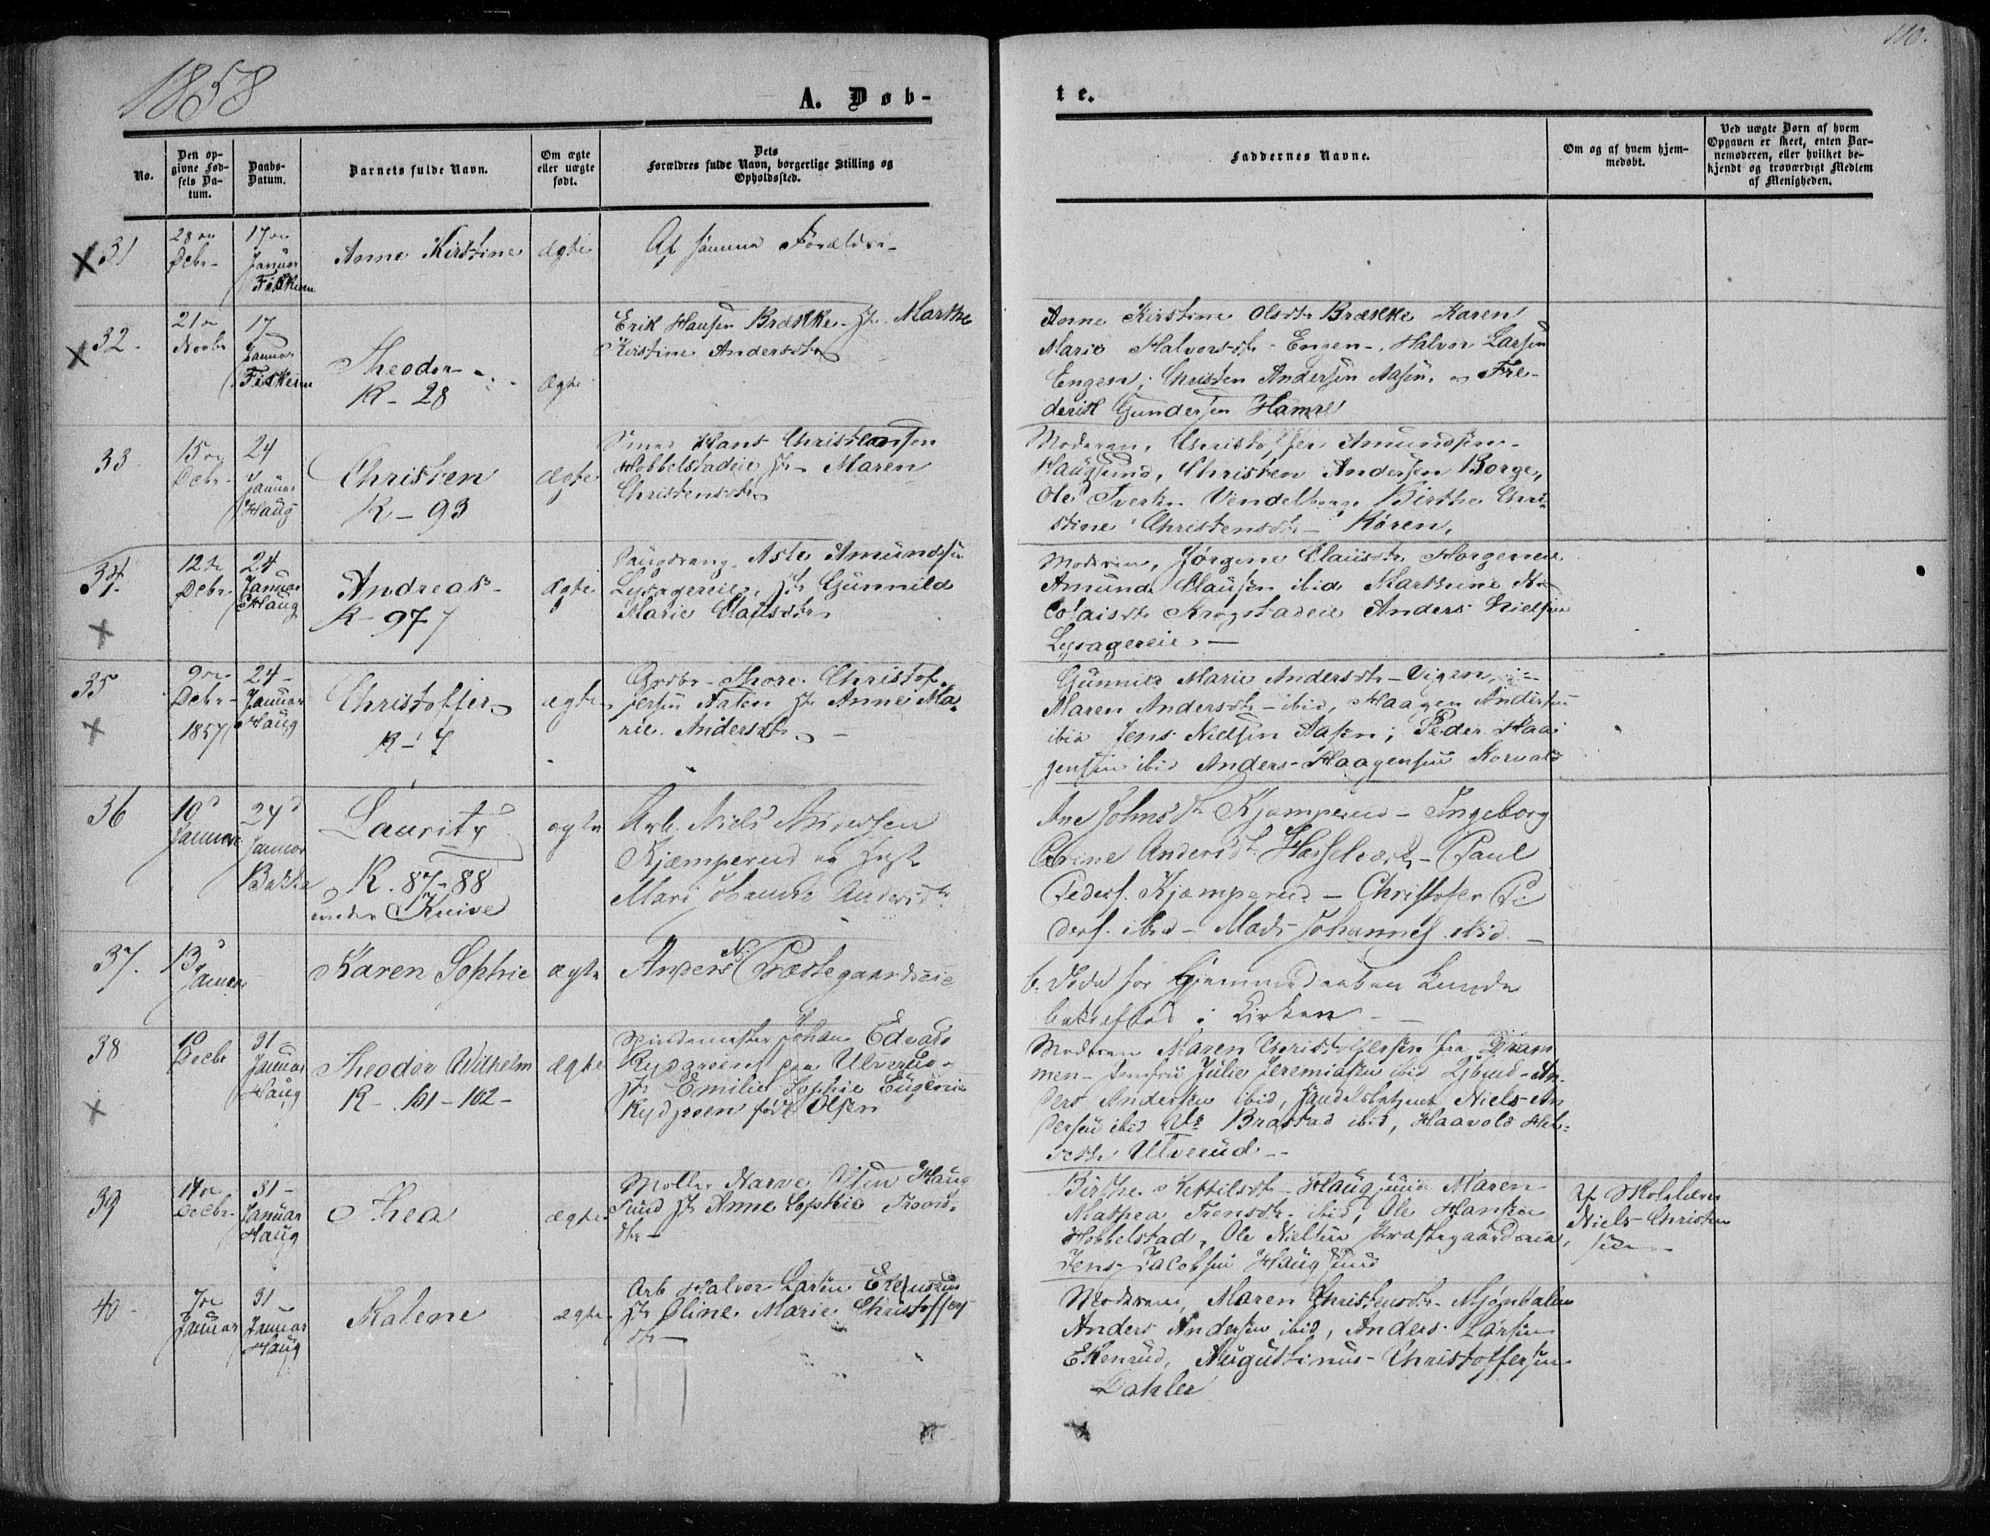 1858
110.
A. Døb-
te.
No.
Den op-
givne Fød-
sels Da-
tum.
Daabs-
Datum.
Barnets fulde Navn.
Om ægte
eller uægte
født.
Dets
Forældres fulde Navn, borgerlige Stilling og
Opholdssted.
Faddernes Navne.
Om og af hvem hjem-
medøbt.
Ved uægte Børn af hvem
Opgaven er skeet, enten Bar-
nemoderen, eller hvilket be-
kjendt og troværdigt Medlem
af Menigheden.
31
28
Debr-
17
Januar
Fiskum
Anne Kirstine
ægte
Af samme Forældre-
32-
21
Novbr
17
Januar
Fiskum
Theodor-
K- 28
ægte
Erik Hansen Bræekke- Marthe
Kirstine Andersdtr
Anne Kirstine Olsdtr Brække Karen
Marie Halvorsdtr Engen-, Halvor Larsen
Engen; Christen Andersen Aasen, og Fre-
derik Gundersen Hamre
33
15
Debr-
24
Januar
Haug
Christen
K- 93
ægte
Hans Christensen
Hobbelstadeie Maren
Christensdtr
Moderen, Christoffer Amundsen-
Haugsund, Christen Andersen Borge,
Ole Vendelborg Birthe Chri-
stine Christensdtr- Horen,
34.
12
Debr
24
Januar
Haug
Andreas-
K- 97
ægte
Asle Amundsen
Lysagereie, Gunnild
Marie Clausdtr
Moderen, Jørgine Clausdtr Horgeneie
Amund Clausen ibid Marthine Ni
colaisdtr Krogstadeie Anders Nielsen
Lysagereie-
35
9
Debr-
1857
24-
Januar
Haug
Christoffer
K- 7
ægte
Grdbr- Thore Christof-
fersen Faten Anne Ma-
rie Andersdtr-
Gunnild Marie Andersdtr- Vigen,
Maren Andersdtr- ibid, Haagen Andersen
ibid Jens Nielsen Aasen; Peder Haa
gensen ibid Anders Haagensen Korvald
36
10
Januar
24
Januar
Bakke
Lauritz
K. 87-88
under Knive
ægte
Arb. Niels Andersen
Kjæmperud og Inst
Mari Johanne Andersdtr
Ane Johnsdtr Kjæmperud- Ingeborg
Corine Andersdtr Hasselværk- Paul
Peders. Kjæmperud- Christofer Pe
ders. ibid- Mads Johannes. ibid-
37.
13
Januar
Karen Sophie
ægte
Anders N. Præstegaardseie
før Hjemmedaaben kunde
bekræftes i Kirken-
38
10
Decbr
31-
Januar
Haug
Theodor Wilhelm
K- 101-102-
ægte
Johan Edvard
Rydgreen paa Ulverud-
Emilie Sophie Eugenie
Rydgreen født Olsen
Moderen Maren Christoffersen fra Dram
men- Jomfru Julie Jeremiassen ibid An
ders Andersen ibid, Handelsbetjent Niels An
dersen ibid Brastad ibid, Haavold Hel-
Ulverud-
39
14
Decbr-
31-
Januar
Haug
Thea
ægte
Møller Narve Olsen Haug
sund Anne Sophie Trond
dtr-
Birthe Kettilsdtr- Haugsund Maren
Mathea ibid, Ole Hansen
Hobbelstad, Ole Nielsen Præstegaardseie,
Jens Jacobsen Haugsund
Af Skolelærer
Niels Christen
sen
40-
7
Januar
31
Januar
Haug
Kalene
ægte
Arb Halvor Larsen Ekenrud
Oline Marie Christoffers
dtr-
Moderen, Maren Christensdtr- Mjøndalen
Anders Andersen ibid, Anders Larsen
Ekenrud, Augustinus Christoffersen
Dahler